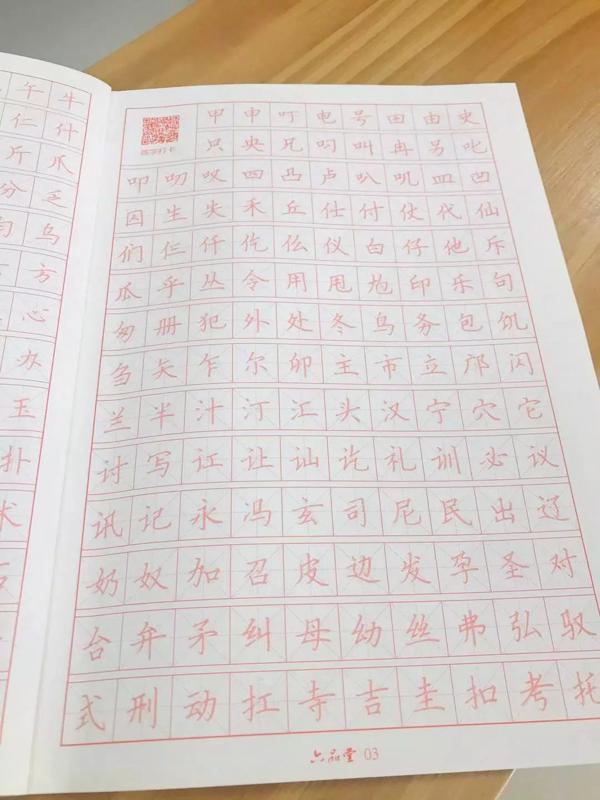 午牛
仁什
斤爪
分乏
乌
方
心
办
玉
扑
术
甲申叮电号田由史
练字打卡
只央兄叼叫冉另叱
叩叨叹四凸卢叭叽皿凹
囚生失禾丘仕付仗代仙
们仨仟仡仫仪白仔他斥
瓜乎丛令用甩尥印乐句
匆册犯外处冬鸟务包饥
刍矢乍尔卯主市立邝闪
兰半汁汀汇头汉宁穴它
讨写讧让讪讫礼训必议
讯记永冯玄司尼民出辽
奶奴加召皮边发孕圣对
台弁矛纠母幼丝弗弘驭
式刑动扛寺吉圭扣考托
六品堂 03